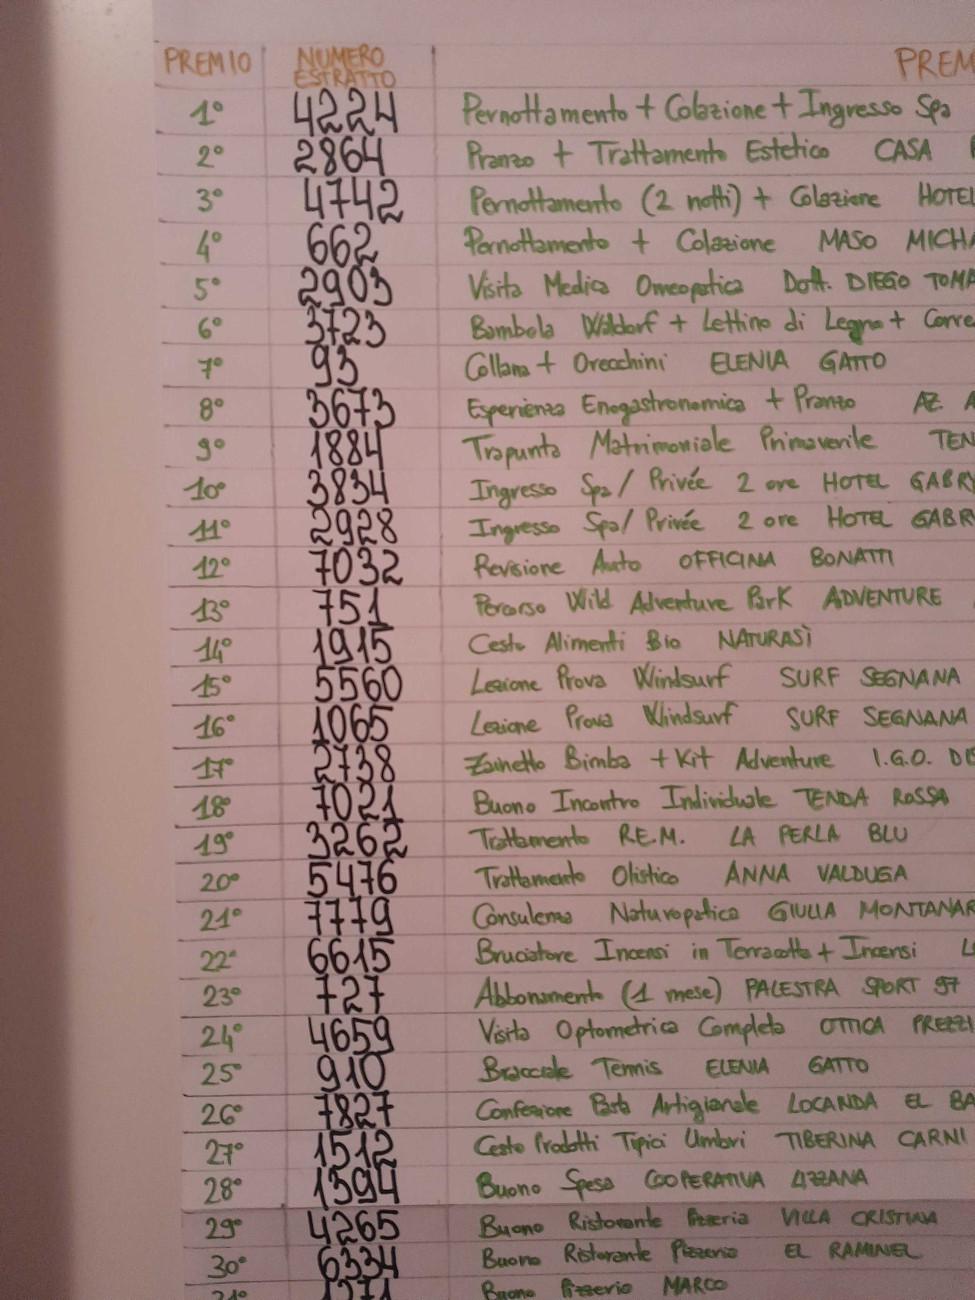 PREMIO NUMERO ESTRATTO PREM
1° 4224 Pernottamento + Colazione + Ingresso Spa
2° 2864 Pranzo + Trattamento Estetico CASA
3° 4742 Pernottamento (2 notti) + Colazione HOTEL
4° 662 Pernottamento + Colazione MASO MICHA
5° 2903 Visita Medica Omeopatica Dott. DIEGO TOMA
6° 3723 Bambola Waldorf + Lettino di Legno + Corre
7° 93 Collana + Orecchini ELENIA GATTO
8° 3673 Esperienza Enogastronomica + Pranzo AZ. A
9° 1884 Trapunta Matrimoniale Primaverile TEN
10° 3834 Ingresso Spa / Privée 2 ore HOTEL GABRY
11° 2928 Ingresso Spa / Privée 2 ore HOTEL GABR
12° 7032 Revisione Auto OFFICINA BONATTI
13° 751 Percorso Wild Adventure Park ADVENTURE
14° 1915 Cesto Alimenti Bio NATURASÌ
15° 5560 Lezione Prova Windsurf SURF SEGNANA
16° 1065 Lezione Prova Windsurf SURF SEGNANA
17° 2738 Zainetto Bimba + Kit Adventure I.G.O. DIS
18° 7021 Buono Incontro Individuale TENDA ROSSA
19° 3262 Trattamento R.E.M. LA PERLA BLU
20° 5476 Trattamento Olistico ANNA VALDUGA
21° 7779 Consulenza Naturopatica GIULIA MONTANAR
22° 6615 Bruciatore Incensi in Terracotta + Incensi L
23° 727 Abbonamento (1 mese) PALESTRA SPORT 97
24° 4659 Visita Optometrica Completa OTTICA PREZZI
25° 910 Bracciale Tennis ELENIA GATTO
26° 7827 Confezione Pasta Artigianale LOCANDA EL BA
27° 1512 Cesto Prodotti Tipici Umbri TIBERINA CARNI
28° 1394 Buono Spesa COOPERATIVA LIZZANA
29° 4265 Buono Ristorante Pizzeria VILLA CRISTINA
30° 6334 Buono Ristorante Pizzeria EL RAMINEL
31° 1271 Buono Pizzeria MARCO